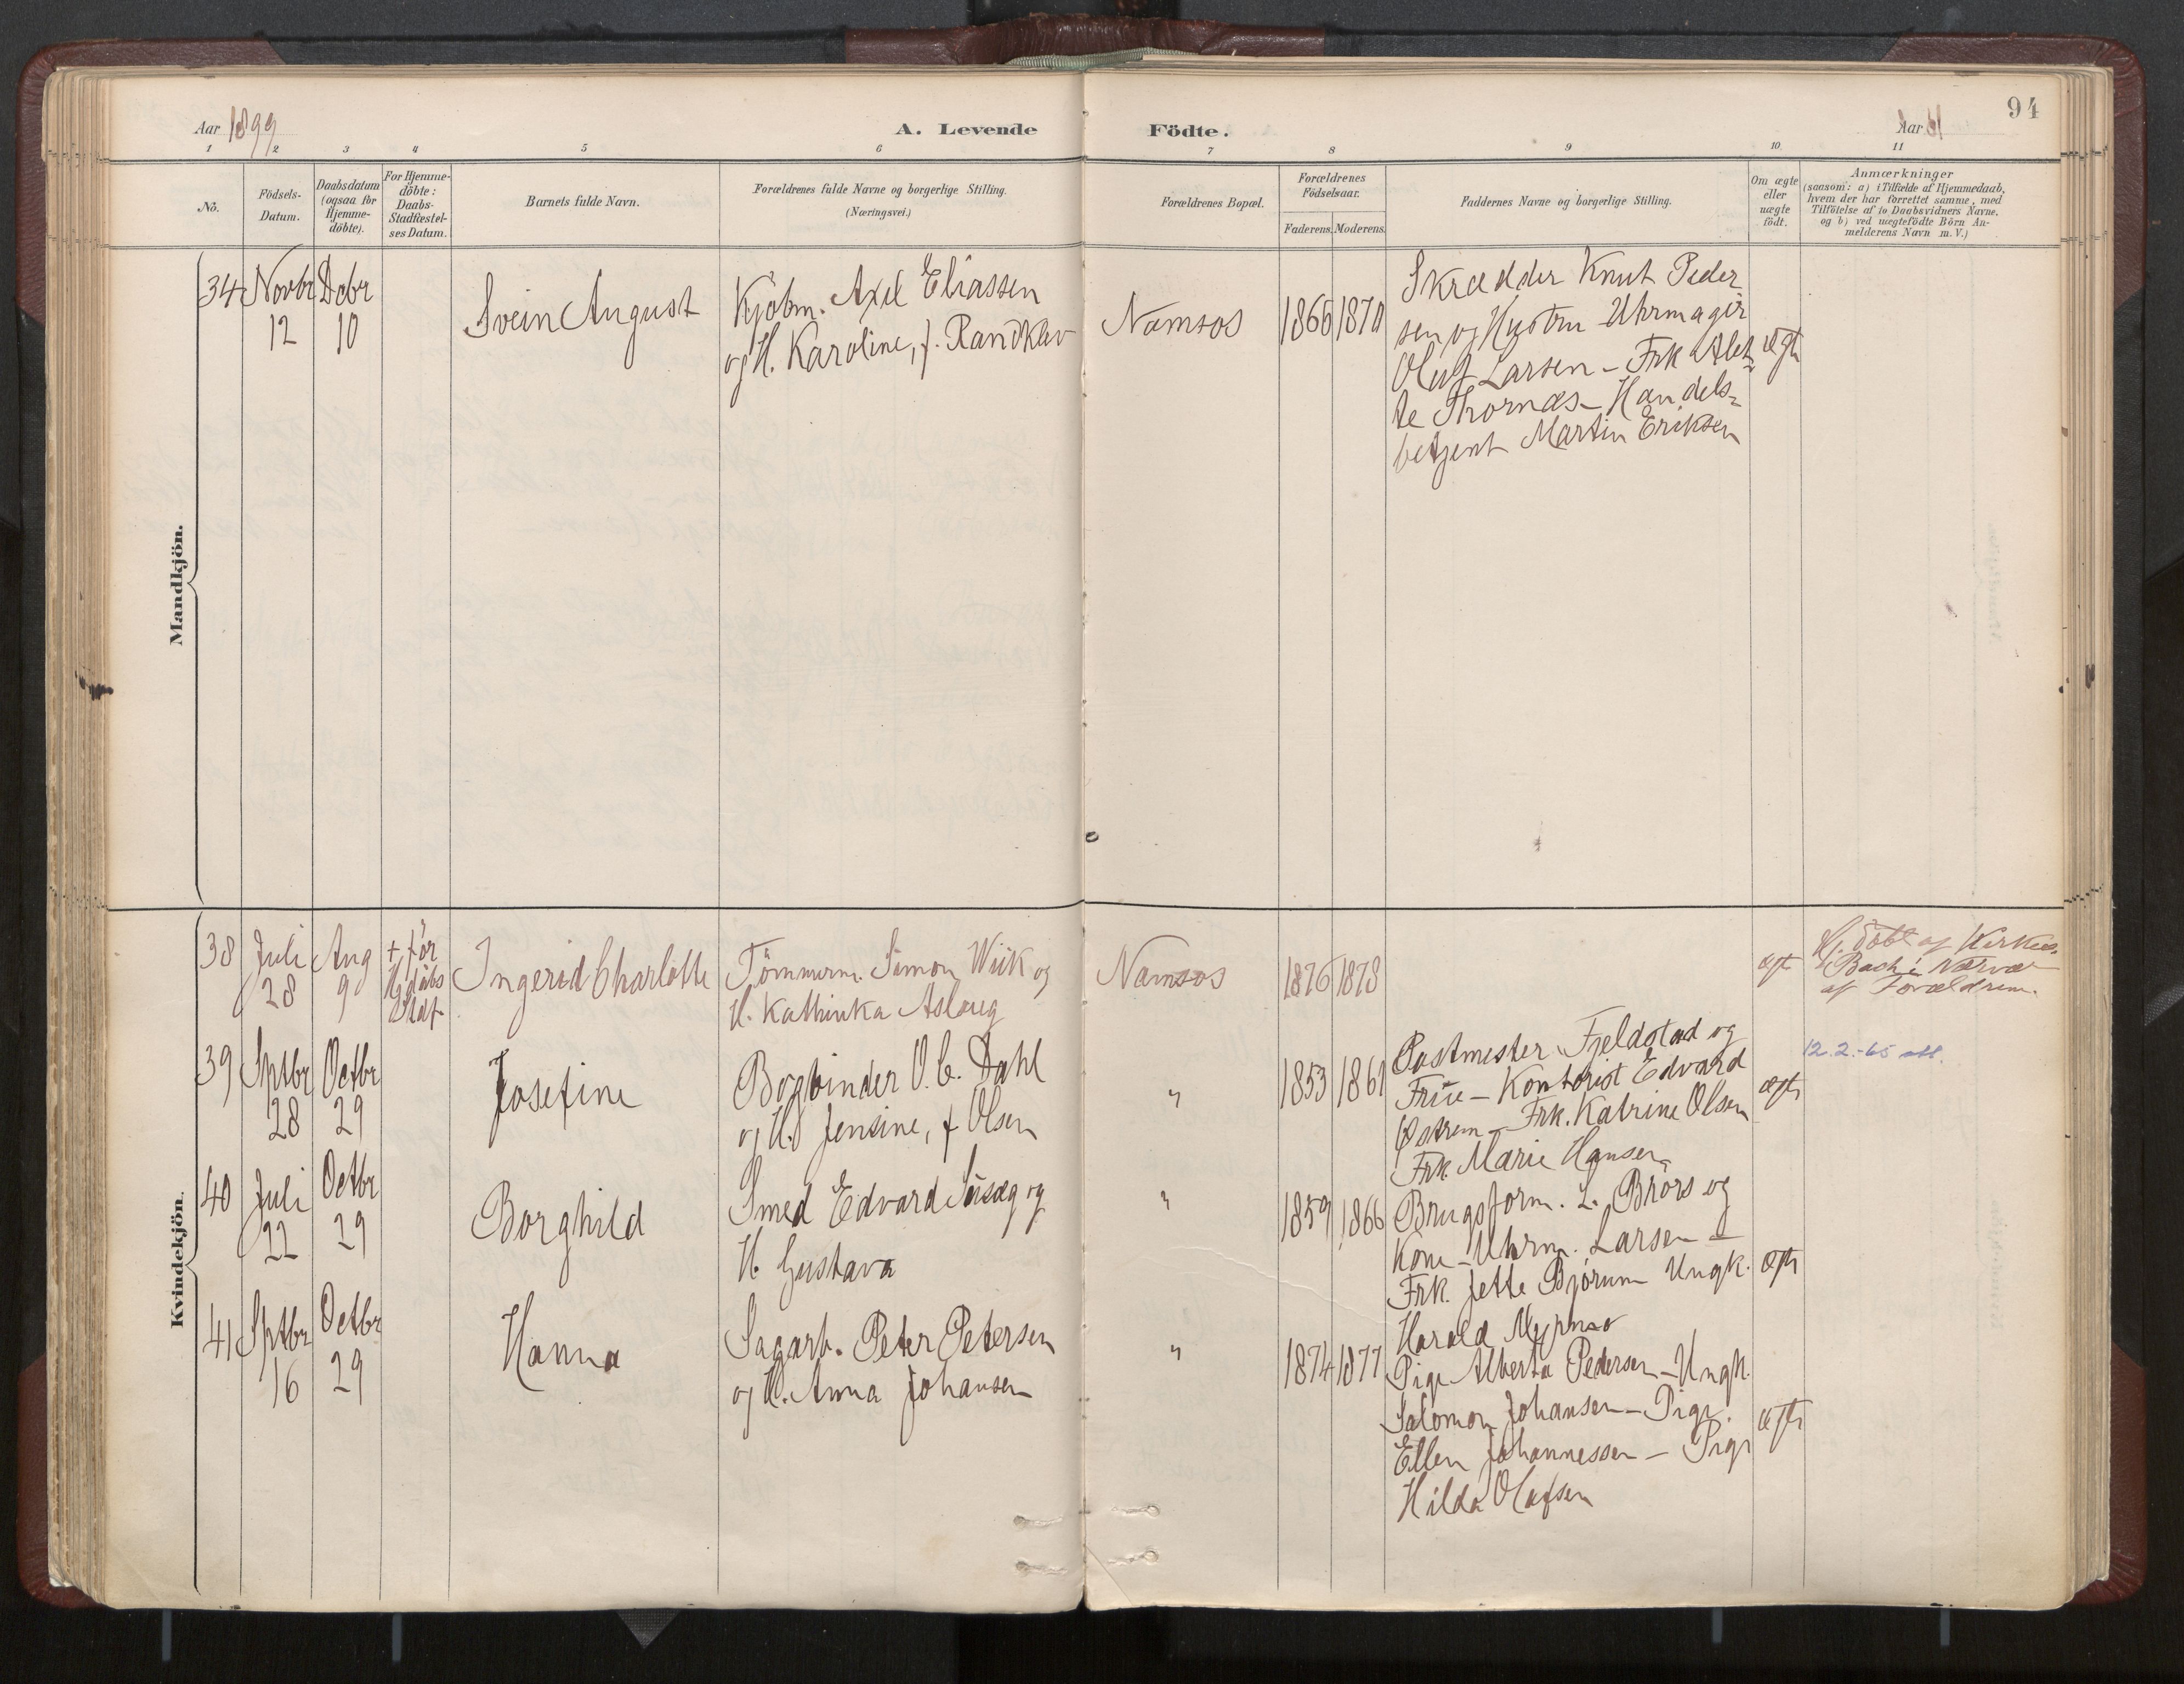 94
Aar 1899
A. Levende Födte.
Aar
1 2 3 4 5 6 7 8 9 10 11
No.
Födsels-Datum.
Daabsdatum (ogsaa for Hjemme-döbte).
For Hjemme-döbte: Daabs-Stadfæstel-ses Datum.
Barnets fulde Navn.
Forældrenes fulde Navne og borgerlige Stilling.
(Næringsvei.)
Forældrenes Bopæl.
Forældrenes Födselsaar.
Faderens. Moderens.
Faddernes Navne og borgerlige Stilling.
Om ægte eller uægte födt.
Anmærkninger
(saasom: a) i Tilfælde af Hjemmedaab,
hvem der har forrettet samme, med
Tilföielse af to Daabsvidners Navne.
og b) ved uægtefödte Börn An-
melderens Navn m. V.)
Mandkjön.
34 Novbr 12 Dcbr 10
Svein August
Kjöbm. Axel Eliassen
og H. Karoline, f. Randklev
Namsos
1866 1870
Skrædder Knut Peder
sen og Hustru Uhrmager
Oluf Larsen - Frk Alet-
te Thornæs - Handels-
betjent Martin Eriksen
ægte
Kvindekjön.
38 Juli 28 Aug 9
+ för Hjdaabs Stadf.
Ingerid Charlotte
Tömmerm. Simon Wiik og
H. Kathinka Aslaug
Namsos
1876 1878
ægte
Hj. döbt af Kirkes.
Bach i Nærvær
af Forældrene.
39 Sptbr 28 Octbr 29
Josefine
Bogbinder O. C. Dahl
og H. Jensine, f Olsen
"
1853 1861
Postmester Fjeldstad og
Frue - Kontorist Edvard
Østrem - Frk. Katrine Olsen
Frk. Marie Hansen
ægte
12.2.-65 att.
40 Juli 22 Octbr 29
Borghild
Smed Edvard og
H. Gustava
"
1859 1866
Brugsform. L. Brörs og
Kone - Uhrm. Larsen -
Frk. Jette Björum Ungk.
Harald
ægte
41 Sptbr 16 Octbr 29
Hanna
Sagarb. Peter Petersen
og H. Anna Johansen
"
1874 1877
Pige Alberta Pedersen - Ungk.
Salomon Johansen - Pige
Ellen Johannessen - Pige
Hilda Olafsen
ægte